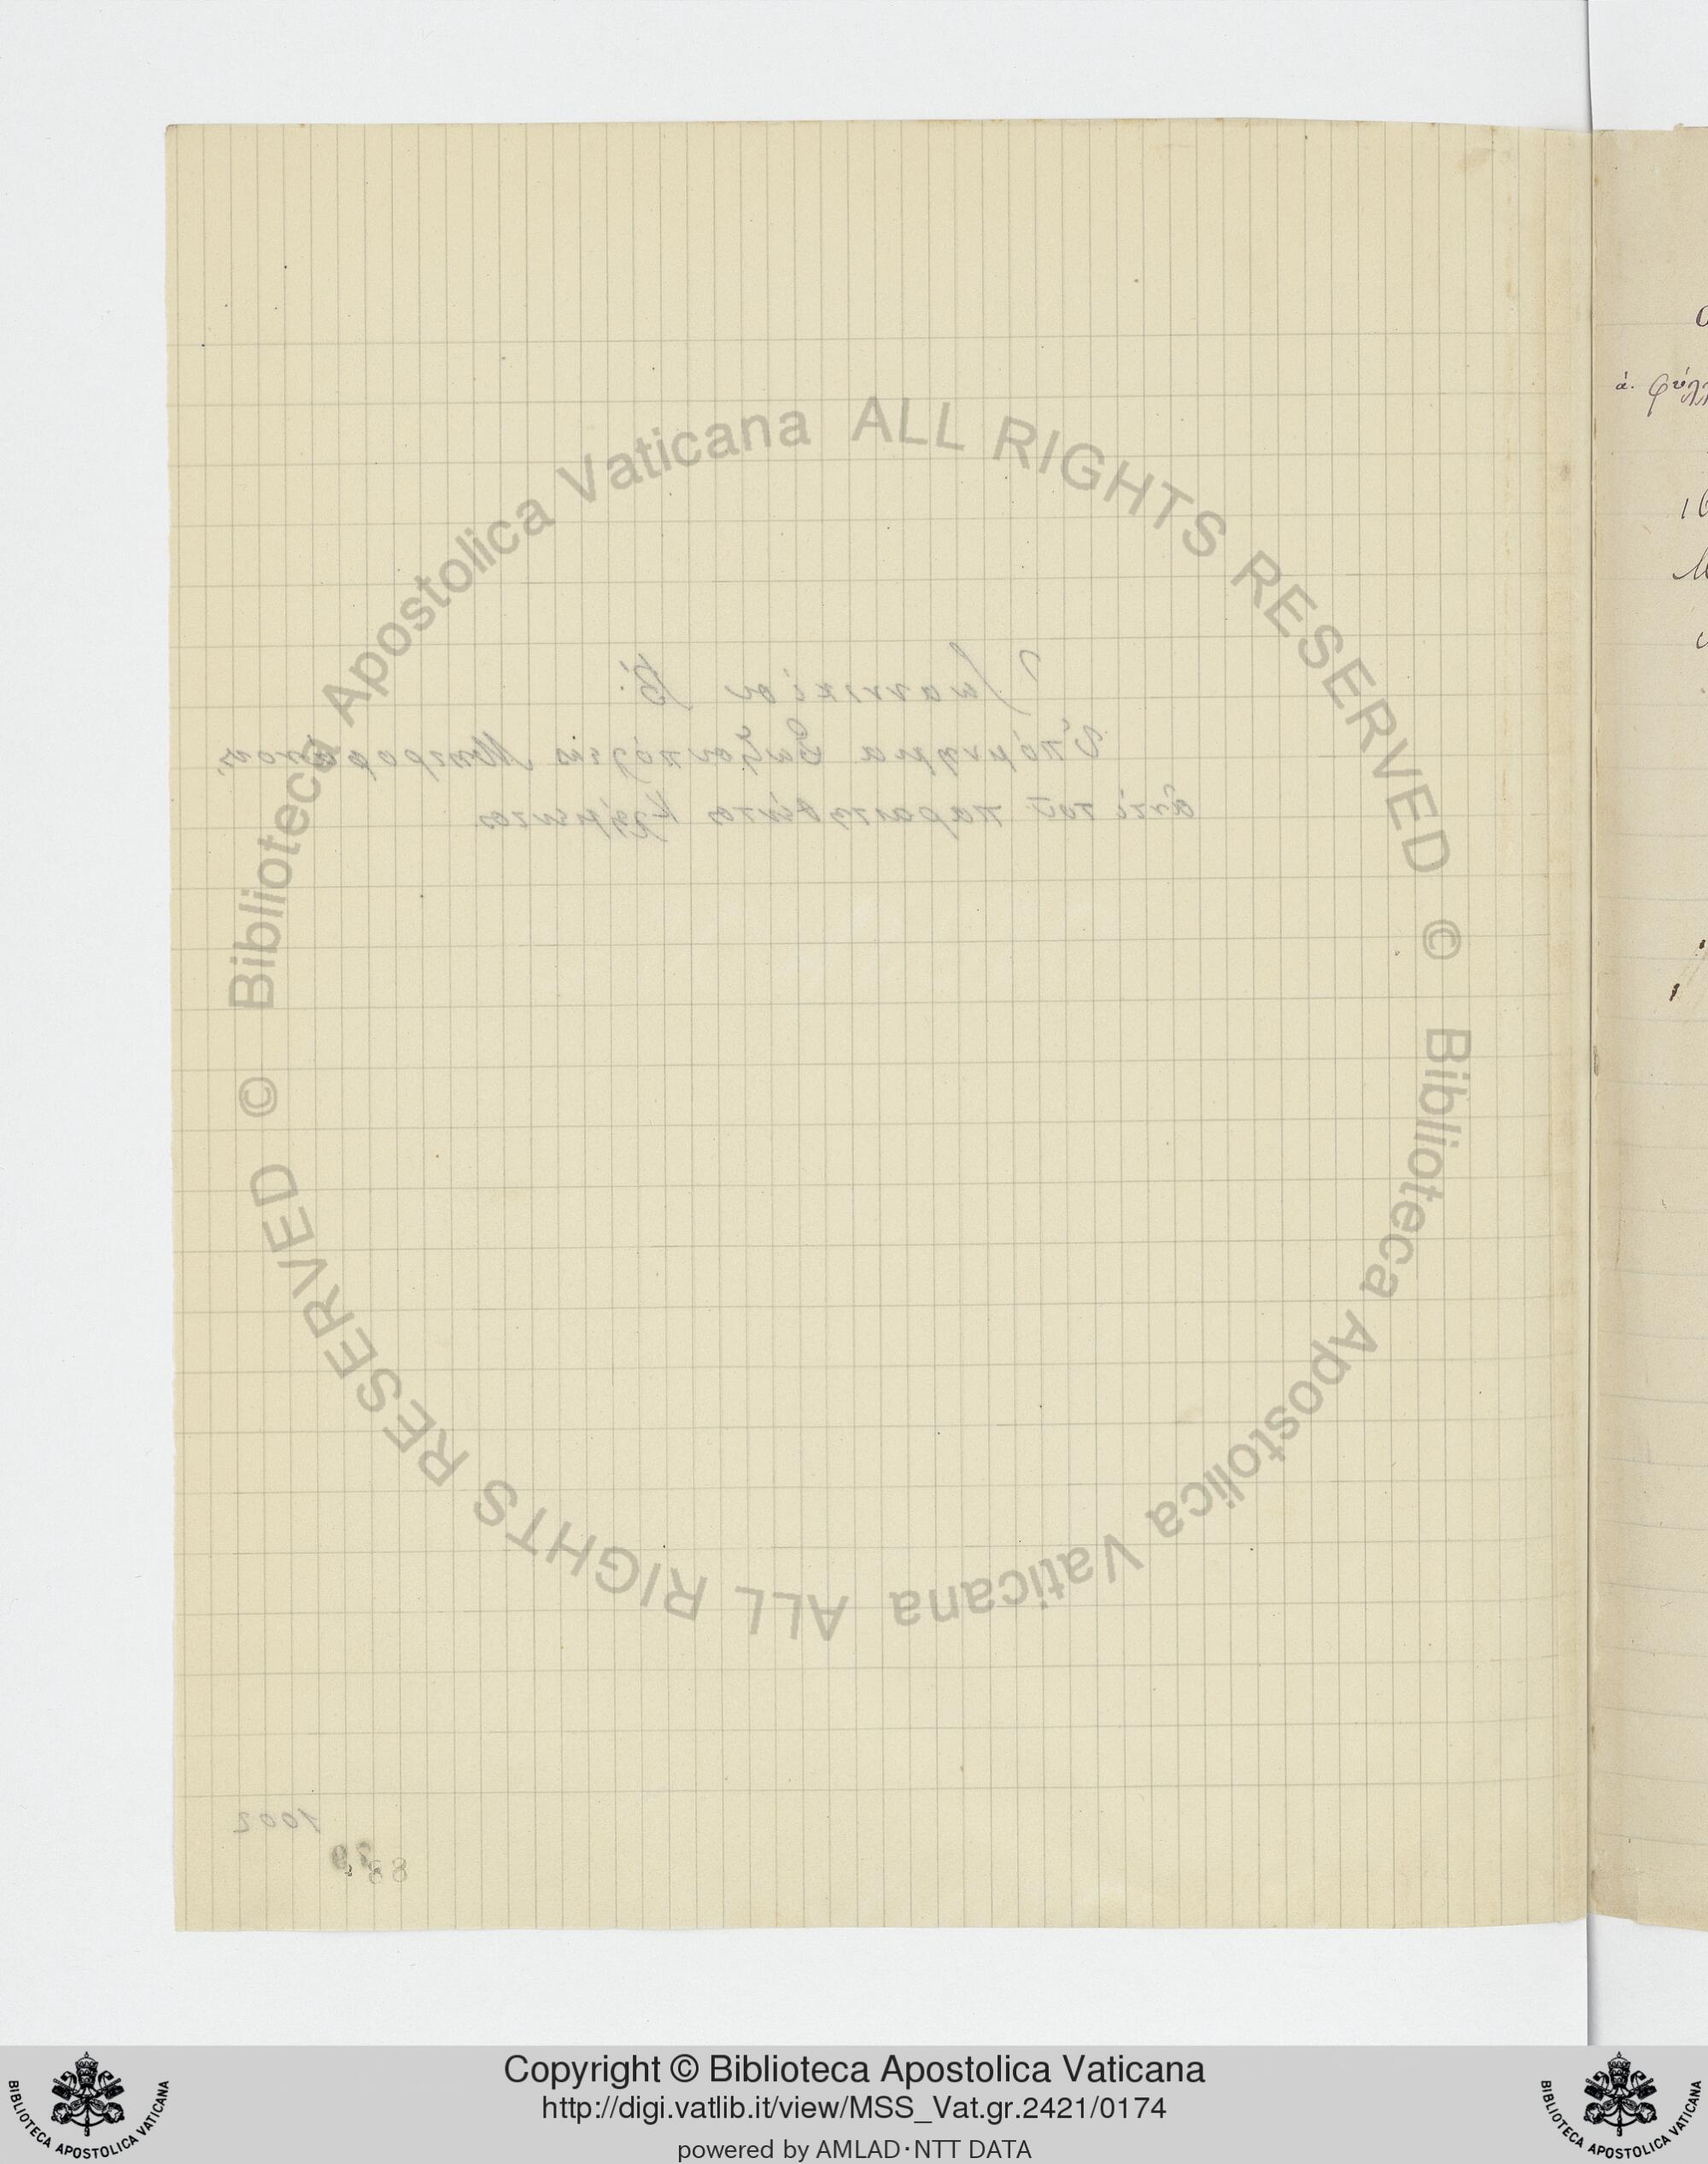 Ἰωαννικίου Β΄.
Ὑπόμνημα Σωζουπόλεως
ἀντὶ τοῦ παραιτηθέντος Κλήμεντος.
1002
ά. φύλλ
© Biblioteca Apostolica Vaticana ALL RIGHTS RESERVED
© Biblioteca Apostolica Vaticana ALL RIGHTS RESERVED
BIBLIOTECA APOSTOLICA VATICANA
Copyright © Biblioteca Apostolica Vaticana
http://digi.vatlib.it/view/MSS_Vat.gr.2421/0174
powered by AMLAD·NTT DATA
BIBLIOTECA APOSTOLICA VATICANA